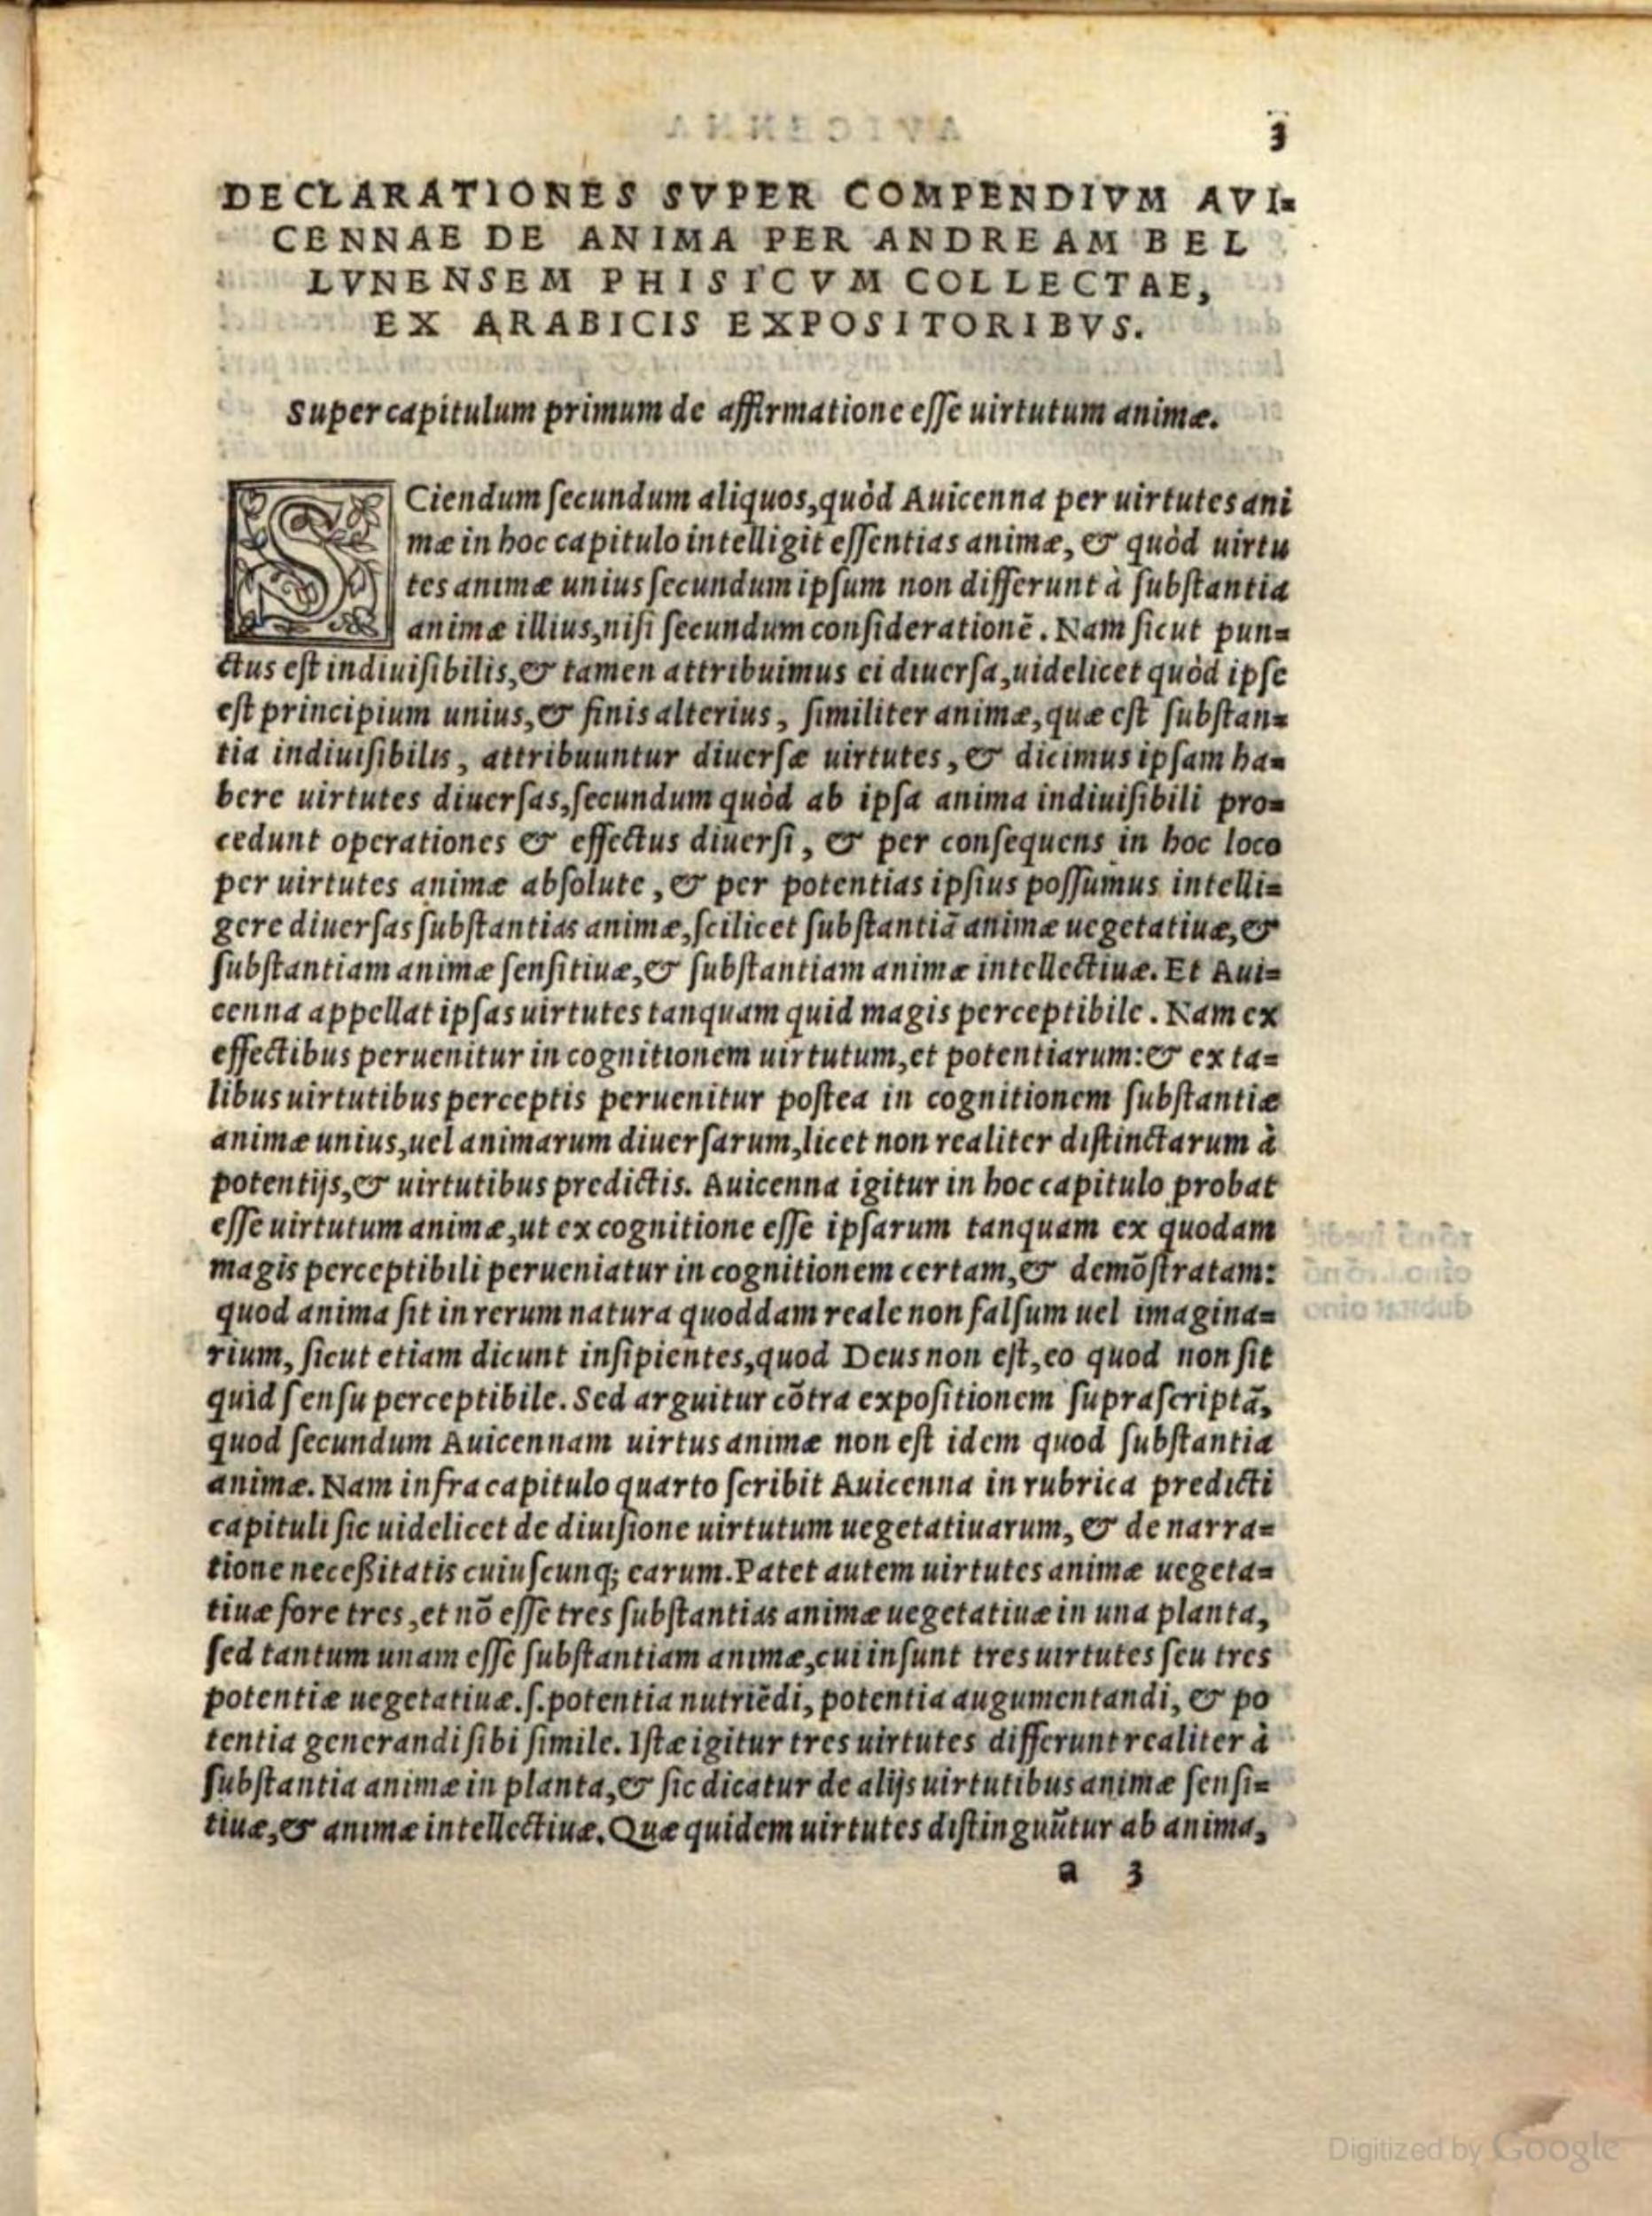 3
DECLARATIONES SVPER COMPENDIVM AVI=
CENNAE DE ANIMA PER ANDREAM BEL
LVNENSEM PHISICVM COLLECTAE,
EX ARABICIS EXPOSITORIBVS.
Super capitulum primum de affirmatione eſſe uirtutum animæ.
SCiendum ſecundum aliquos, quòd Auicenna per uirtutes ani
mæ in hoc capitulo intelligit eſſentias animæ, & quòd uirtu
tes animæ unius ſecundum ipſum non differunt à ſubſtantia
animæ illius, niſi ſecundum conſiderationē. Nam ſicut pun=
ctus eſt indiuiſibilis, & tamen attribuimus ei diuerſa, uidelicet quòd ipſe
eſt principium unius, & finis alterius, ſimiliter animæ, quæ eſt ſubſtan=
tia indiuiſibilis, attribuuntur diuerſæ uirtutes, & dicimus ipſam ha=
bere uirtutes diuerſas, ſecundum quòd ab ipſa anima indiuiſibili pro=
cedunt operationes & effectus diuerſi, & per conſequens in hoc loco
per uirtutes animæ abſolute, & per potentias ipſius poſſumus intelli=
gere diuerſas ſubſtantias animæ, ſcilicet ſubſtantiā animæ uegetatiuæ, &
ſubſtantiam animæ ſenſitiuæ, & ſubſtantiam animæ intellectiuæ. Et Aui=
cenna appellat ipſas uirtutes tanquam quid magis perceptibile. Nam ex
effectibus peruenitur in cognitionem uirtutum, et potentiarum: & ex ta=
libus uirtutibus perceptis peruenitur poſtea in cognitionem ſubſtantiæ
animæ unius, uel animarum diuerſarum, licet non realiter diſtinctarum à
potentijs, & uirtutibus predictis. Auicenna igitur in hoc capitulo probat
eſſe uirtutum animæ, ut ex cognitione eſſe ipſarum tanquam ex quodam
magis perceptibili perueniatur in cognitionem certam, & demōſtratam:
quod anima ſit in rerum natura quoddam reale non falſum uel imagina=
rium, ſicut etiam dicunt inſipientes, quod Deus non eſt, eo quod non ſit
quid ſenſu perceptibile. Sed arguitur cōtra expoſitionem ſupraſcriptā,
quod ſecundum Auicennam uirtus animæ non eſt idem quod ſubſtantia
animæ. Nam infra capitulo quarto ſcribit Auicenna in rubrica predicti
capituli ſic uidelicet de diuiſione uirtutum uegetatiuarum, & de narra=
tione neceßitatis cuiuſcunq; earum. Patet autem uirtutes animæ uegeta=
tiuæ fore tres, et nō eſſe tres ſubſtantias animæ uegetatiuæ in una planta,
ſed tantum unam eſſe ſubſtantiam animæ, cui inſunt tres uirtutes ſeu tres
potentiæ uegetatiuæ. ſ. potentia nutriēdi, potentia augumentandi, & po
tentia generandi ſibi ſimile. Iſtæ igitur tres uirtutes differunt realiter à
ſubſtantia animæ in planta, & ſic dicatur de alijs uirtutibus animæ ſenſi=
tiuæ, & animæ intellectiuæ. Quæ quidem uirtutes diſtinguūtur ab anima,
a 3
Digitized by Google